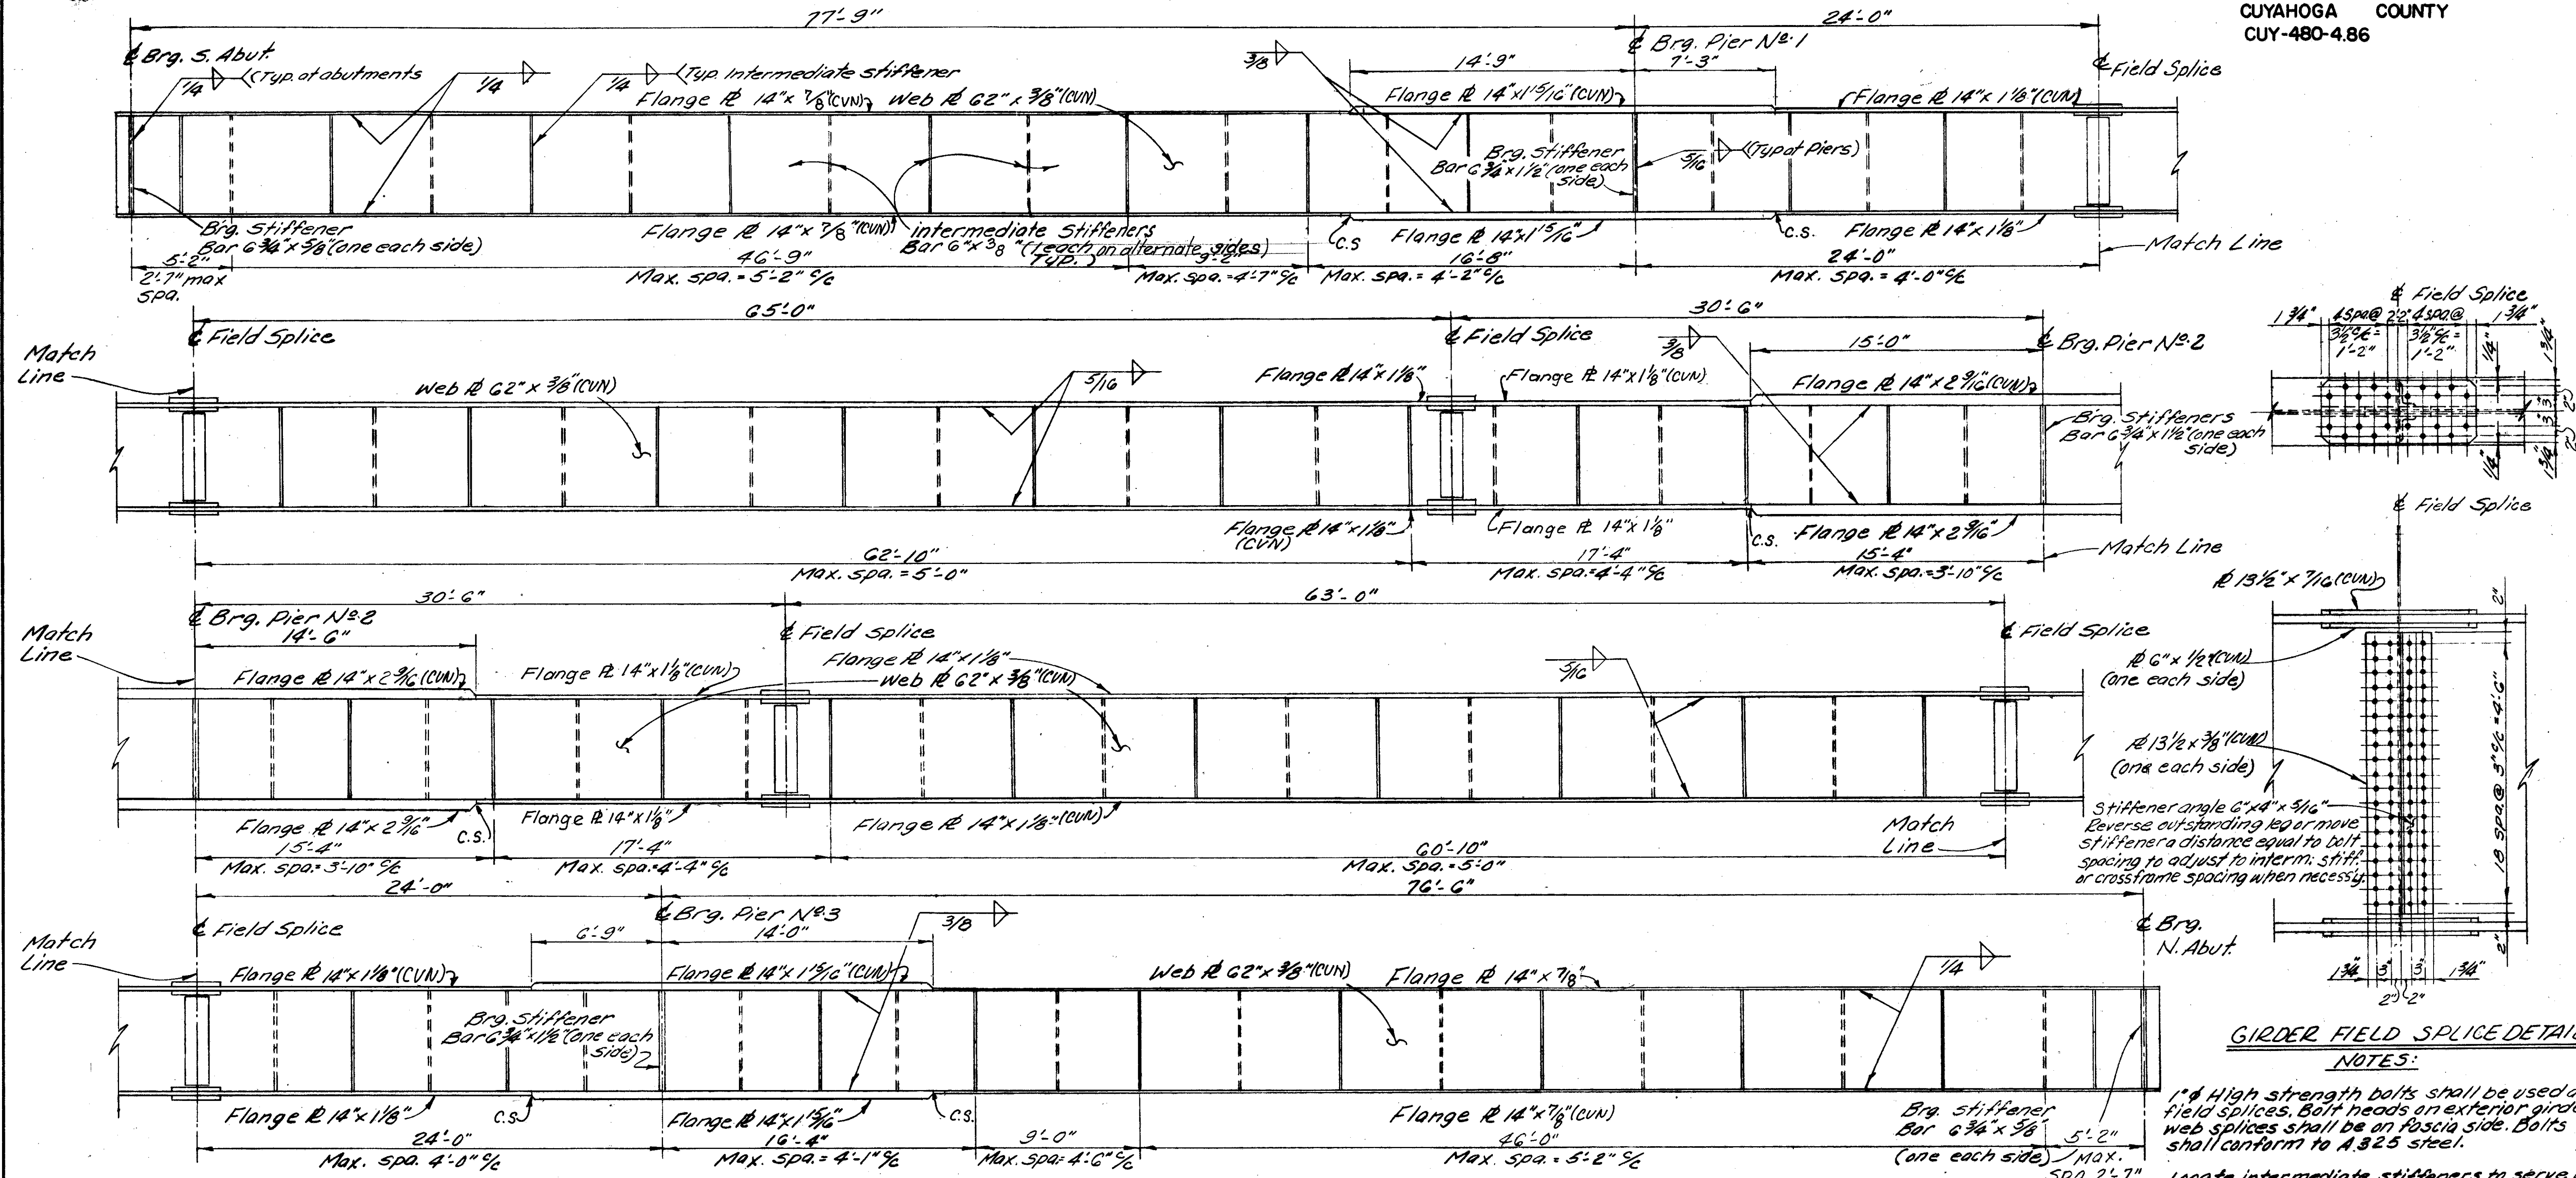 CUYAHOGA COUNTY
CUY-480-4.86
77'-9"
24'-0"
℄ Brg. S. Abut.
℄ Brg. Pier Nº 1
℄ Field Splice
1/4 (Typ. at abutments
1/4
1/4 (Typ. Intermediate stiffener
3/8
14'-9"
7'-3"
Flange ℙ 14" x 7/8" (CVN)
Web ℙ 62" x 3/8" (CVN)
Flange ℙ 14" x 1 15/16" (CVN)
Flange ℙ 14" x 1 1/8" (CVN)
Brg. Stiffener
Bar 6 3/4" x 1 1/2" (one each
side)
5/16 (Typ at Piers)
Brg. Stiffener
Bar 6 3/4" x 5/8" (one each side)
Flange ℙ 14" x 7/8" (CVN)
intermediate Stiffeners
Bar 6" x 3/8" (1 each on alternate sides)
Typ.)
C.S
Flange ℙ 14" x 1 15/16"
C.S.
Flange ℙ 14" x 1 1/8"
Match Line
5'-2"
2'-7" max
spa.
46'-9"
Max. spa. = 5'-2" c/c
9'-2"
Max. spa. = 4'-7" c/c
16'-8"
Max. spa. = 4'-2" c/c
24'-0"
Max. spa. = 4'-0" c/c
65'-0"
30'-6"
Match
Line
℄ Field Splice
℄ Field Splice
3/8
15'-0"
℄ Brg. Pier Nº 2
Web ℙ 62" x 3/8" (CVN)
5/16
Flange ℙ 14" x 1 1/8"
Flange ℙ 14" x 1 1/8" (CVN)
Flange ℙ 14" x 2 9/16" (CVN)
Brg. Stiffeners
Bar 6 3/4" x 1 1/2" (one each
side)
Flange ℙ 14" x 1 1/8"
(CVN)
Flange ℙ 14" x 1 1/8"
C.S.
Flange ℙ 14" x 2 9/16"
Match Line
62'-10"
Max. spa. = 5'-0"
17'-4"
Max. spa. = 4'-4" c/c
15'-4"
Max. spa. = 3'-10" c/c
30'-6"
63'-0"
Match
Line
℄ Brg. Pier Nº 2
14'-6"
℄ Field Splice
℄ Field Splice
Flange ℙ 14" x 2 9/16 (CVN)
Flange ℙ 14" x 1 1/8" (CVN)
Flange ℙ 14" x 1 1/8"
Web ℙ 62" x 3/8" (CVN)
5/16
Flange ℙ 14" x 2 9/16"
C.S.
Flange ℙ 14" x 1 1/8"
Flange ℙ 14" x 1 1/8" (CVN)
Match
Line
15'-4"
Max. spa. = 3'-10" c/c
17'-4"
Max. spa. = 4'-4" c/c
60'-10"
Max. spa. = 5'-0"
24'-0"
76'-6"
Match
Line
℄ Field Splice
℄ Brg. Pier Nº 3
6'-9"
14'-0"
3/8
℄ Brg.
N. Abut.
Flange ℙ 14" x 1 1/8" (CVN)
Flange ℙ 14" x 1 15/16" (CVN)
Web ℙ 62" x 3/8" (CVN)
Flange ℙ 14" x 7/8"
1/4
Brg. Stiffener
Bar 6 3/4" x 1 1/2" (one each
side)
Flange ℙ 14" x 1 1/8"
C.S.
Flange ℙ 14" x 1 15/16"
C.S.
Flange ℙ 14" x 7/8" (CVN)
Brg. stiffener
Bar 6 3/4" x 5/8"
(one each side)
24'-0"
Max. spa. 4'-0" c/c
16'-4"
Max. spa. = 4'-1" c/c
9'-0"
Max. spa. = 4'-6" c/c
46'-0"
Max. spa. = 5'-2" c/c
5'-2"
Max.
spa 2'-7"
℄ Field Splice
1 3/4" 4 spa@ 2" 2" 4 spa@ 1 3/4"
3 1/2" c/c = 3 1/2" c/c =
1'-2" 1'-2"
1/4"
1 3/4"
2"
3"
3"
2"
1/4"
1 3/4"
℄ Field Splice
ℙ 13 1/2" x 7/16 (CVN)
2"
ℙ 6" x 1/2" (CVN)
(one each side)
ℙ 13 1/2 x 3/8" (CVN)
(one each side)
Stiffener angle 6" x 4" x 5/16"
Reverse outstanding leg or move
stiffener a distance equal to bolt
spacing to adjust to interm. stiff.
or crossframe spacing when necess'y.
18 spa@ 3" c/c = 4'-6"
2"
1 3/4" 3" 3" 1 3/4"
2" 2"
GIRDER FIELD SPLICE DETAI
NOTES:
1"ϕ High strength bolts shall be used
field splices. Bolt heads on exterior gird
web splices shall be on fascia side. Bolts
shall conform to A325 steel.
Locate intermediate stiffeners to serve